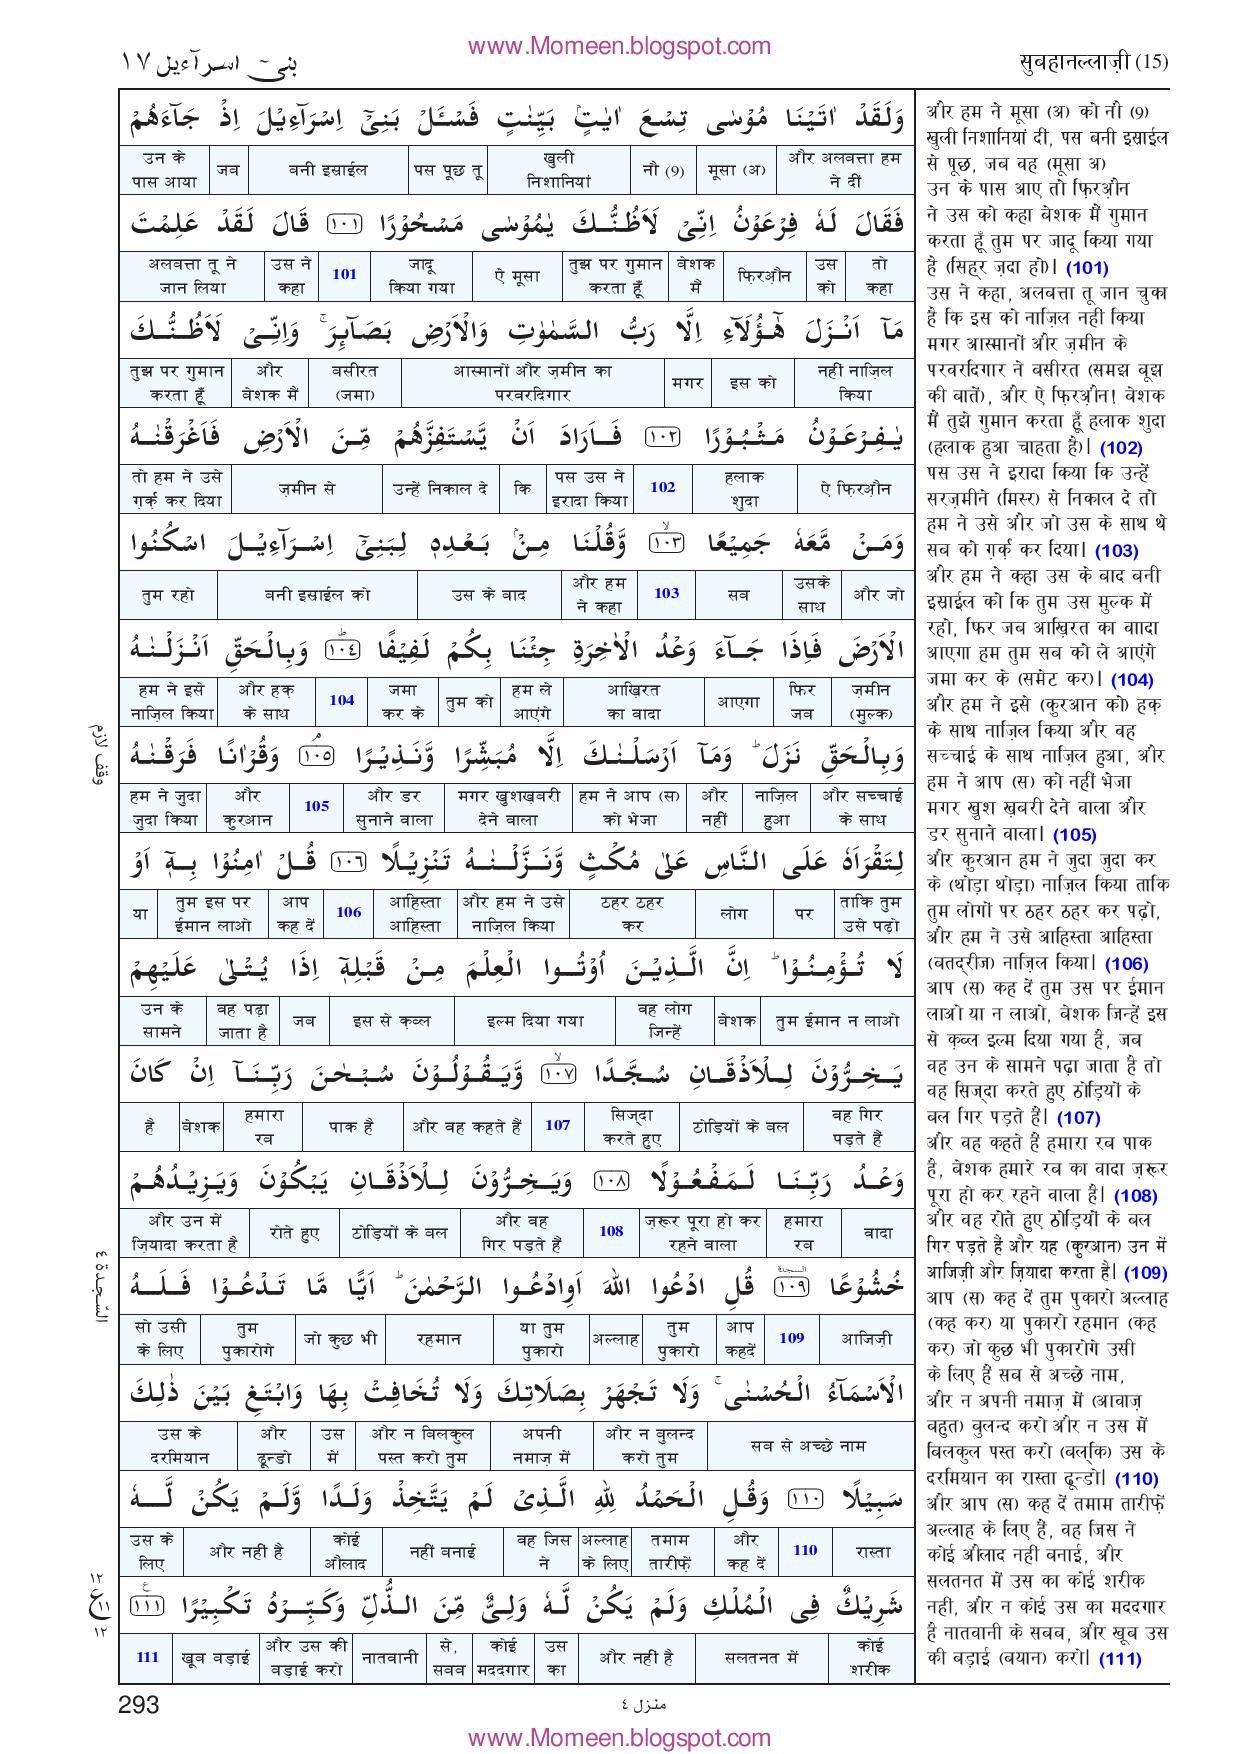 www.Momeen.blogspot.com
بنیٓ اسرآءیل ١٧
सुबहानल्लाज़ी (15)
وَلَقَدْ اٰتَيْنَا مُوْسٰى تِسْعَ اٰيٰتٍۭ بَيِّنٰتٍ فَسْـَٔلْ بَنِيْٓ اِسْرَآءِيْلَ اِذْ جَآءَهُمْ
और अलबत्ता हम ने दीं मूसा (अ) नौ (9) खुली निशानियां पस पूछ तू बनी इस्राईल जब उन के पास आया
فَقَالَ لَهٗ فِرْعَوْنُ اِنِّيْ لَاَظُنُّكَ يٰمُوْسٰى مَسْحُوْرًا ١٠١ قَالَ لَقَدْ عَلِمْتَ
तो कहा उस को फ़िरऔन बेशक मैं तुझ पर गुमान करता हूँ ऐ मूसा जादू किया गया 101 उस ने कहा अलबत्ता तू ने जान लिया
مَآ اَنْزَلَ هٰٓؤُلَآءِ اِلَّا رَبُّ السَّمٰوٰتِ وَالْاَرْضِ بَصَآىِٕرَ ۚ وَاِنِّيْ لَاَظُنُّكَ
नहीं नाज़िल किया इस को मगर आस्मानों और ज़मीन का परवरदिगार बसीरत (जमा) और बेशक मैं तुझ पर गुमान करता हूँ
يٰفِرْعَوْنُ مَثْبُوْرًا ١٠٢ فَاَرَادَ اَنْ يَّسْتَفِزَّهُمْ مِّنَ الْاَرْضِ فَاَغْرَقْنٰهُ
ऐ फ़िरऔन हलाक शुदा 102 पस उस ने इरादा किया कि उन्हें निकाल दे ज़मीन से तो हम ने उसे ग़र्क़ कर दिया
وَمَنْ مَّعَهٗ جَمِيْعًا ۙ١٠٣ وَّقُلْنَا مِنْۢ بَعْدِهٖ لِبَنِيْٓ اِسْرَآءِيْلَ اسْكُنُوا
और जो उसके साथ सब 103 और हम ने कहा उस के बाद बनी इस्राईल को तुम रहो
الْاَرْضَ فَاِذَا جَآءَ وَعْدُ الْاٰخِرَةِ جِئْنَا بِكُمْ لَفِيْفًا ۭ١٠٤ وَبِالْحَقِّ اَنْزَلْنٰهُ
ज़मीन (मुल्क) फिर जब आएगा आख़िरत का वादा हम ले आएंगे तुम को जमा कर के 104 और हक़ के साथ हम ने इसे नाज़िल किया
وَبِالْحَقِّ نَزَلَ ۭ وَمَآ اَرْسَلْنٰكَ اِلَّا مُبَشِّرًا وَّنَذِيْرًا ۘ١٠٥ وَقُرْاٰنًا فَرَقْنٰهُ
और सच्चाई के साथ नाज़िल हुआ और नहीं हम ने आप (स) को भेजा मगर खुशख़बरी देने वाला और डर सुनाने वाला 105 और कुरआन हम ने जुदा जुदा किया
وقف لازم
لِتَقْرَاَهٗ عَلَى النَّاسِ عَلٰى مُكْثٍ وَّنَزَّلْنٰهُ تَنْزِيْلًا ١٠٦ قُلْ اٰمِنُوْا بِهٖٓ اَوْ
ताकि तुम उसे पढ़ो पर लोग ठहर ठहर कर और हम ने उसे नाज़िल किया आहिस्ता आहिस्ता 106 आप कह दें तुम इस पर ईमान लाओ या
لَا تُؤْمِنُوْا ۭ اِنَّ الَّذِيْنَ اُوْتُوا الْعِلْمَ مِنْ قَبْلِهٖٓ اِذَا يُتْلٰى عَلَيْهِمْ
तुम ईमान न लाओ बेशक वह लोग जिन्हें इल्म दिया गया इस से क़ब्ल जब वह पढ़ा जाता है उन के सामने
يَخِرُّوْنَ لِلْاَذْقَانِ سُجَّدًا ۙ١٠٧ وَّيَقُوْلُوْنَ سُبْحٰنَ رَبِّنَآ اِنْ كَانَ
वह गिर पड़ते हैं ठोड़ियों के बल सिज्दा करते हुए 107 और वह कहते हैं पाक है हमारा रब बेशक है
وَعْدُ رَبِّنَا لَمَفْعُوْلًا ١٠٨ وَيَخِرُّوْنَ لِلْاَذْقَانِ يَبْكُوْنَ وَيَزِيْدُهُمْ
वादा हमारा रब ज़रूर पूरा हो कर रहने वाला 108 और वह गिर पड़ते हैं ठोड़ियों के बल रोते हुए और उन में ज़ियादा करता है
خُشُوْعًا ١٠٩ قُلِ ادْعُوا اللهَ اَوِادْعُوا الرَّحْمٰنَ ۭ اَيًّا مَّا تَدْعُوْا فَلَهُ
السجدة
आजिज़ी 109 आप कहदें तुम पुकारो अल्लाह या तुम पुकारो रहमान जो कुछ भी तुम पुकारोगे सो उसी के लिए
السجدة ٤
الْاَسْمَآءُ الْحُسْنٰى ۚ وَلَا تَجْهَرْ بِصَلَاتِكَ وَلَا تُخَافِتْ بِهَا وَابْتَغِ بَيْنَ ذٰلِكَ
सब से अच्छे नाम और न बुलन्द करो तुम अपनी नमाज़ में और न बिलकुल पस्त करो तुम उस में और ढून्डो उस के दरमियान
سَبِيْلًا ١١٠ وَقُلِ الْحَمْدُ لِلهِ الَّذِيْ لَمْ يَتَّخِذْ وَلَدًا وَّلَمْ يَكُنْ لَّهٗ
रास्ता 110 और कह दें तमाम तारीफ़ें अल्लाह के लिए वह जिस ने नहीं बनाई कोई औलाद और नहीं है उस के लिए
شَرِيْكٌ فِى الْمُلْكِ وَلَمْ يَكُنْ لَّهٗ وَلِيٌّ مِّنَ الذُّلِّ وَكَبِّرْهُ تَكْبِيْرًا ١١١
कोई शरीक सलतनत में और नहीं है उस का कोई मददगार से, सबब नातवानी और उस की बड़ाई करो खूब बड़ाई 111
١٢
ع ١١
١٢
और हम ने मूसा (अ) को नौ (9)
खुली निशानियां दीं, पस बनी इस्राईल
से पूछ, जब वह (मूसा अ)
उन के पास आए तो फ़िरऔन
ने उस को कहा बेशक मैं गुमान
करता हूँ तुम पर जादू किया गया
है (सिह्र ज़दा हो)। (101)
उस ने कहा, अलबत्ता तू जान चुका
है कि इस को नाज़िल नहीं किया
मगर आस्मानों और ज़मीन के
परवरदिगार ने बसीरत (समझ बूझ
की बातें), और ऐ फ़िरऔन! बेशक
मैं तुझे गुमान करता हूँ हलाक शुदा
(हलाक हुआ चाहता है)। (102)
पस उस ने इरादा किया कि उन्हें
सरज़मीने (मिस्र) से निकाल दे तो
हम ने उसे और जो उस के साथ थे
सब को ग़र्क़ कर दिया। (103)
और हम ने कहा उस के बाद बनी
इस्राईल को कि तुम उस मुल्क में
रहो, फिर जब आख़िरत का वाादा
आएगा हम तुम सब को ले आएंगे
जमा कर के (समेट कर)। (104)
और हम ने इसे (कुरआन को) हक़
के साथ नाज़िल किया और वह
सच्चाई के साथ नाज़िल हुआ, और
हम ने आप (स) को नहीं भेजा
मगर खुश ख़बरी देने वाला और
डर सुनाने वाला। (105)
और कुरआन हम ने जुदा जुदा कर
के (थोड़ा थोड़ा) नाज़िल किया ताकि
तुम लोगों पर ठहर ठहर कर पढ़ो,
और हम ने उसे आहिस्ता आहिस्ता
(बतद्रीज) नाज़िल किया। (106)
आप (स) कह दें तुम उस पर ईमान
लाओ या न लाओ, बेशक जिन्हें इस
से क़ब्ल इल्म दिया गया है, जब
वह उन के सामने पढ़ा जाता है तो
वह सिज्दा करते हुए ठोड़ियों के
बल गिर पड़ते हैं। (107)
और वह कहते हैं हमारा रब पाक
है, बेशक हमारे रब का वादा ज़रूर
पूरा हो कर रहने वाला है। (108)
और वह रोते हुए ठोड़ियों के बल
गिर पड़ते हैं और यह (कुरआन) उन में
आजिज़ी और ज़ियादा करता है। (109)
आप (स) कह दें तुम पुकारो अल्लाह
(कह कर) या पुकारो रहमान (कह
कर) जो कुछ भी पुकारोगे उसी
के लिए हैं सब से अच्छे नाम,
और न अपनी नमाज़ में (आवाज़
बहुत) बुलन्द करो और न उस में
बिलकुल पस्त करो (बल्कि) उस के
दरमियान का रास्ता ढून्डो। (110)
और आप (स) कह दें तमाम तारीफ़ें
अल्लाह के लिए हैं, वह जिस ने
कोई औलाद नहीं बनाई, और
सलतनत में उस का कोई शरीक
नहीं, और न कोई उस का मददगार
है नातवानी के सबब, और खूब उस
की बड़ाई (बयान) करो। (111)
293
منزل ٤
www.Momeen.blogspot.com